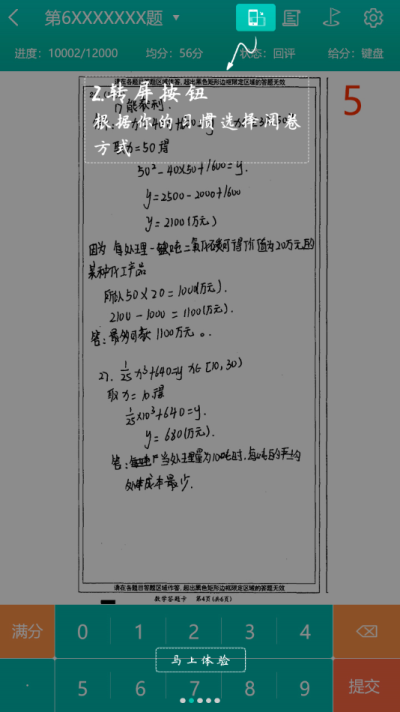 第6XXXXXXX题
进度: 10002/12000 均分: 56分 状态: 回评 给分: 键盘
请在各题目答题区域作答,超出黑色矩形边框限定区域的答题无效
5
2.转屏按钮
根据你的习惯选择阅卷
方式
取x=50得
50²-40×50+1600=y.
y=2500-2000+1600
y=2100(万元)
因为 每处理一吨二氧化碳可得价值为20万元的
某种化工产品
所以50×20=1000(万元).
2100-1000=1100(万元).
答:最多可亏 1100万元。
2). 1/25 x³+640=y x∈[10,30)
取x=10得
1/25×10³+640=y.
y=680(万元).
答: 当处理量为10吨时,每吨的平均
处理成本最少.
请在各题目答题区域作答,超出黑色矩形边框限定区域的答题无效
数学答题卡 第4页(共6页)
满分 0 1 2 3 4
马上体验
. 5 6 7 8 9 提交